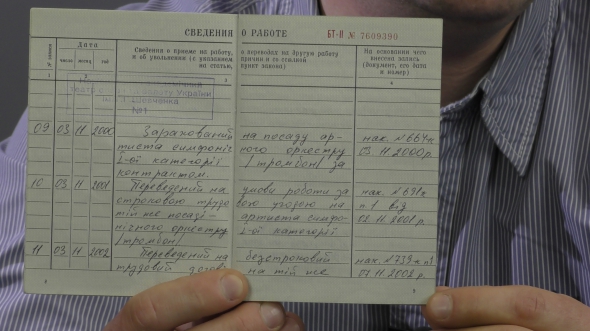 СВЕДЕНИЯ О РАБОТЕ
БТ-II № 7609390
№ записи
Дата
число
месяц
год
Сведения о приеме на работу, о переводах на другую работу
и об увольнении (с указанием причин и со ссылкой
на статью, пункт закона)
На основании чего
внесена запись
(документ, его дата
и номер)
1
2
3
України
Шевченка
№1
09 03 11 2000 Зарахований на посаду ар-
тиста симфоніч ного оркестру
І-ої категорії /тромбон/ за
контрактом.
нак. №664-к
03.11.2000р.
10 03 11 2001 Переведений на умови роботи за
строковою трудо вою угодою на
тій же посаді - артиста симфо-
нічного оркестру І-ої категорії
/тромбон/
нак. №691к
п1 від
02.11.2001р.
11 03 11 2002 Переведений на безстроковий
трудовий догові на тій же
нак. №739-к п1
07.11.2002р.
8
9